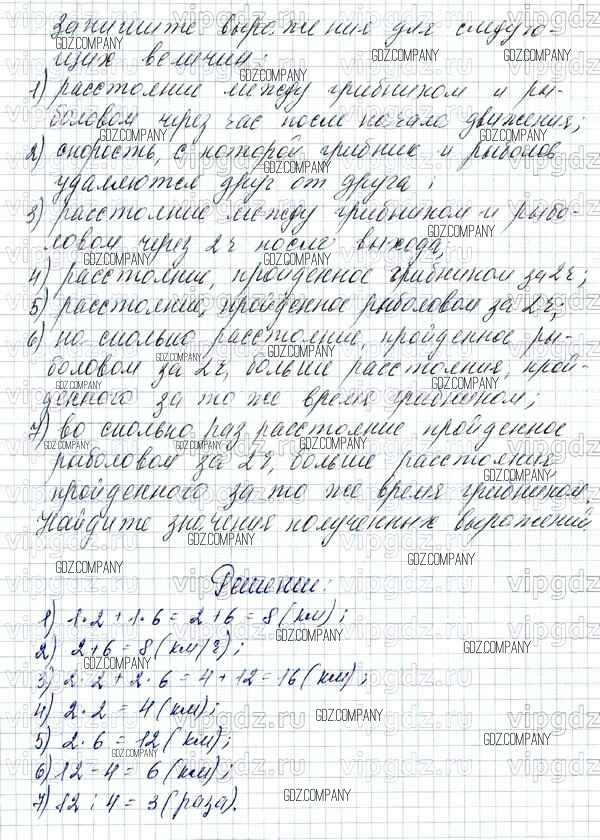 Запишите выражения для следую-
щих величин:
1) расстояние между грибником и ры-
боловом через час после начала движения;
2) скорость, с которой грибник и рыболов
удаляются друг от друга;
3) расстояние между грибником и рыбо-
ловом через 2ч после выхода;
4) расстояние, пройденное грибником за 2ч;
5) расстояние, пройденное рыболовом за 2ч;
6) на сколько расстояние, пройденное ры-
боловом за 2ч, больше расстояния, прой-
денного за то же время грибником;
7) во сколько раз расстояние пройденное
рыболовом за 2ч, больше расстояния
пройденного за то же время грибником.
Найдите значения полученных выражений
Решение:
1) 1·2 + 1·6 = 2 + 6 = 8 (км);
2) 2+6 = 8 (км/ч);
3) 2·2 + 2·6 = 4 + 12 = 16 (км);
4) 2·2 = 4 (км);
5) 2·6 = 12 (км);
6) 12 - 4 = 6 (км);
7) 12 : 4 = 3 (раза).
GDZ.COMPANY
vipgdz.ru